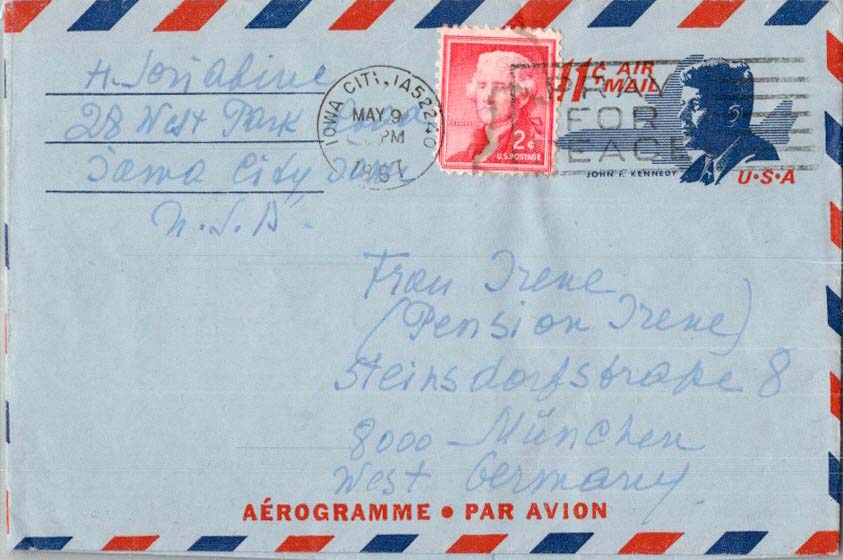 28 West Park Road
Iowa City Iowa
U.S.A.
IOWA CITY, IA 52240
MAY 9
PM
2¢
U.S. POSTAGE
11¢ AIR
MAIL
PRAY
FOR
PEACE
JOHN F. KENNEDY
U•S•A
Frau Irene
(Pension Irene)
Steinsdorfstraße 8
8000 München
West Germany
AÉROGRAMME • PAR AVION